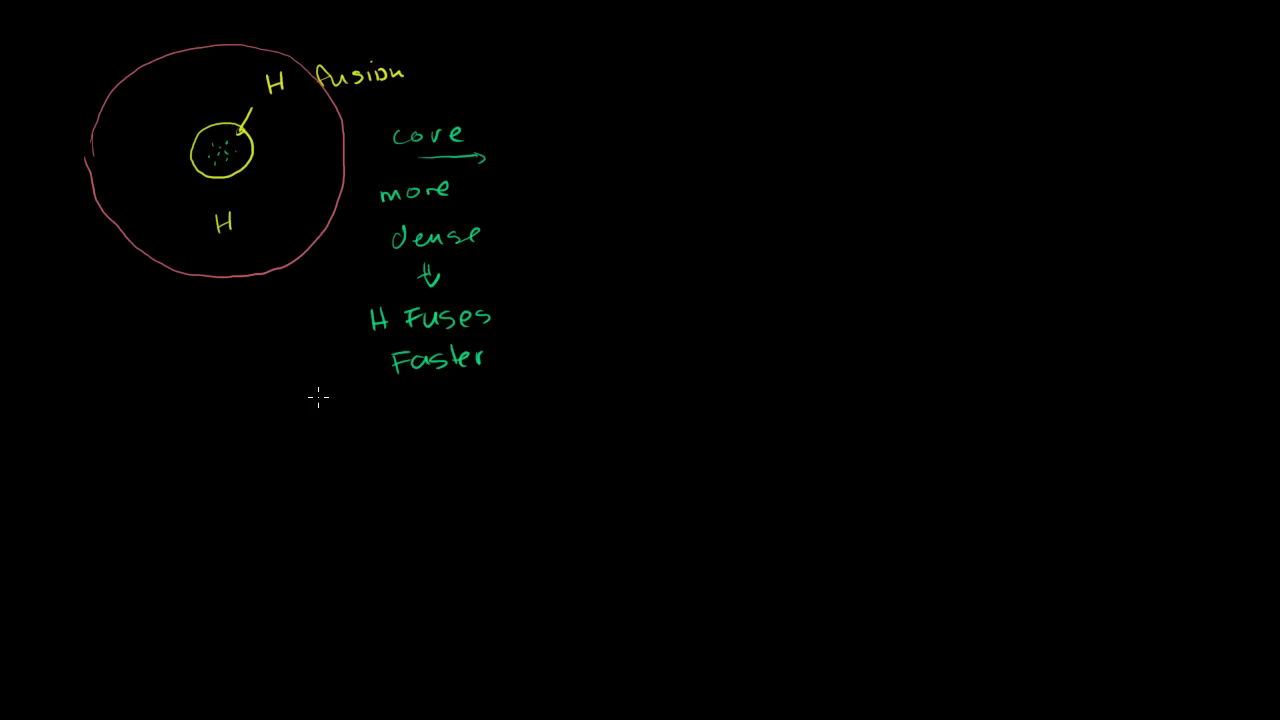 H fusion
H
core
more
dense
H Fuses
Faster